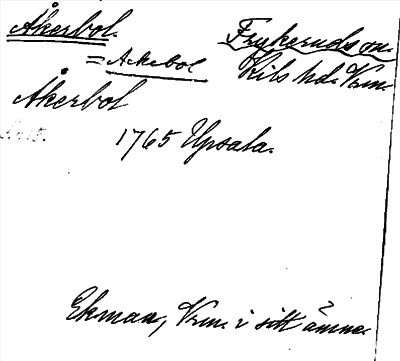 Åkerbol. Frykeruds sn.
= Åkebol Kils hd. Vrm.
Åkerbol
1765 Upsala.
Ekman, Vrm. i sitt ämne.